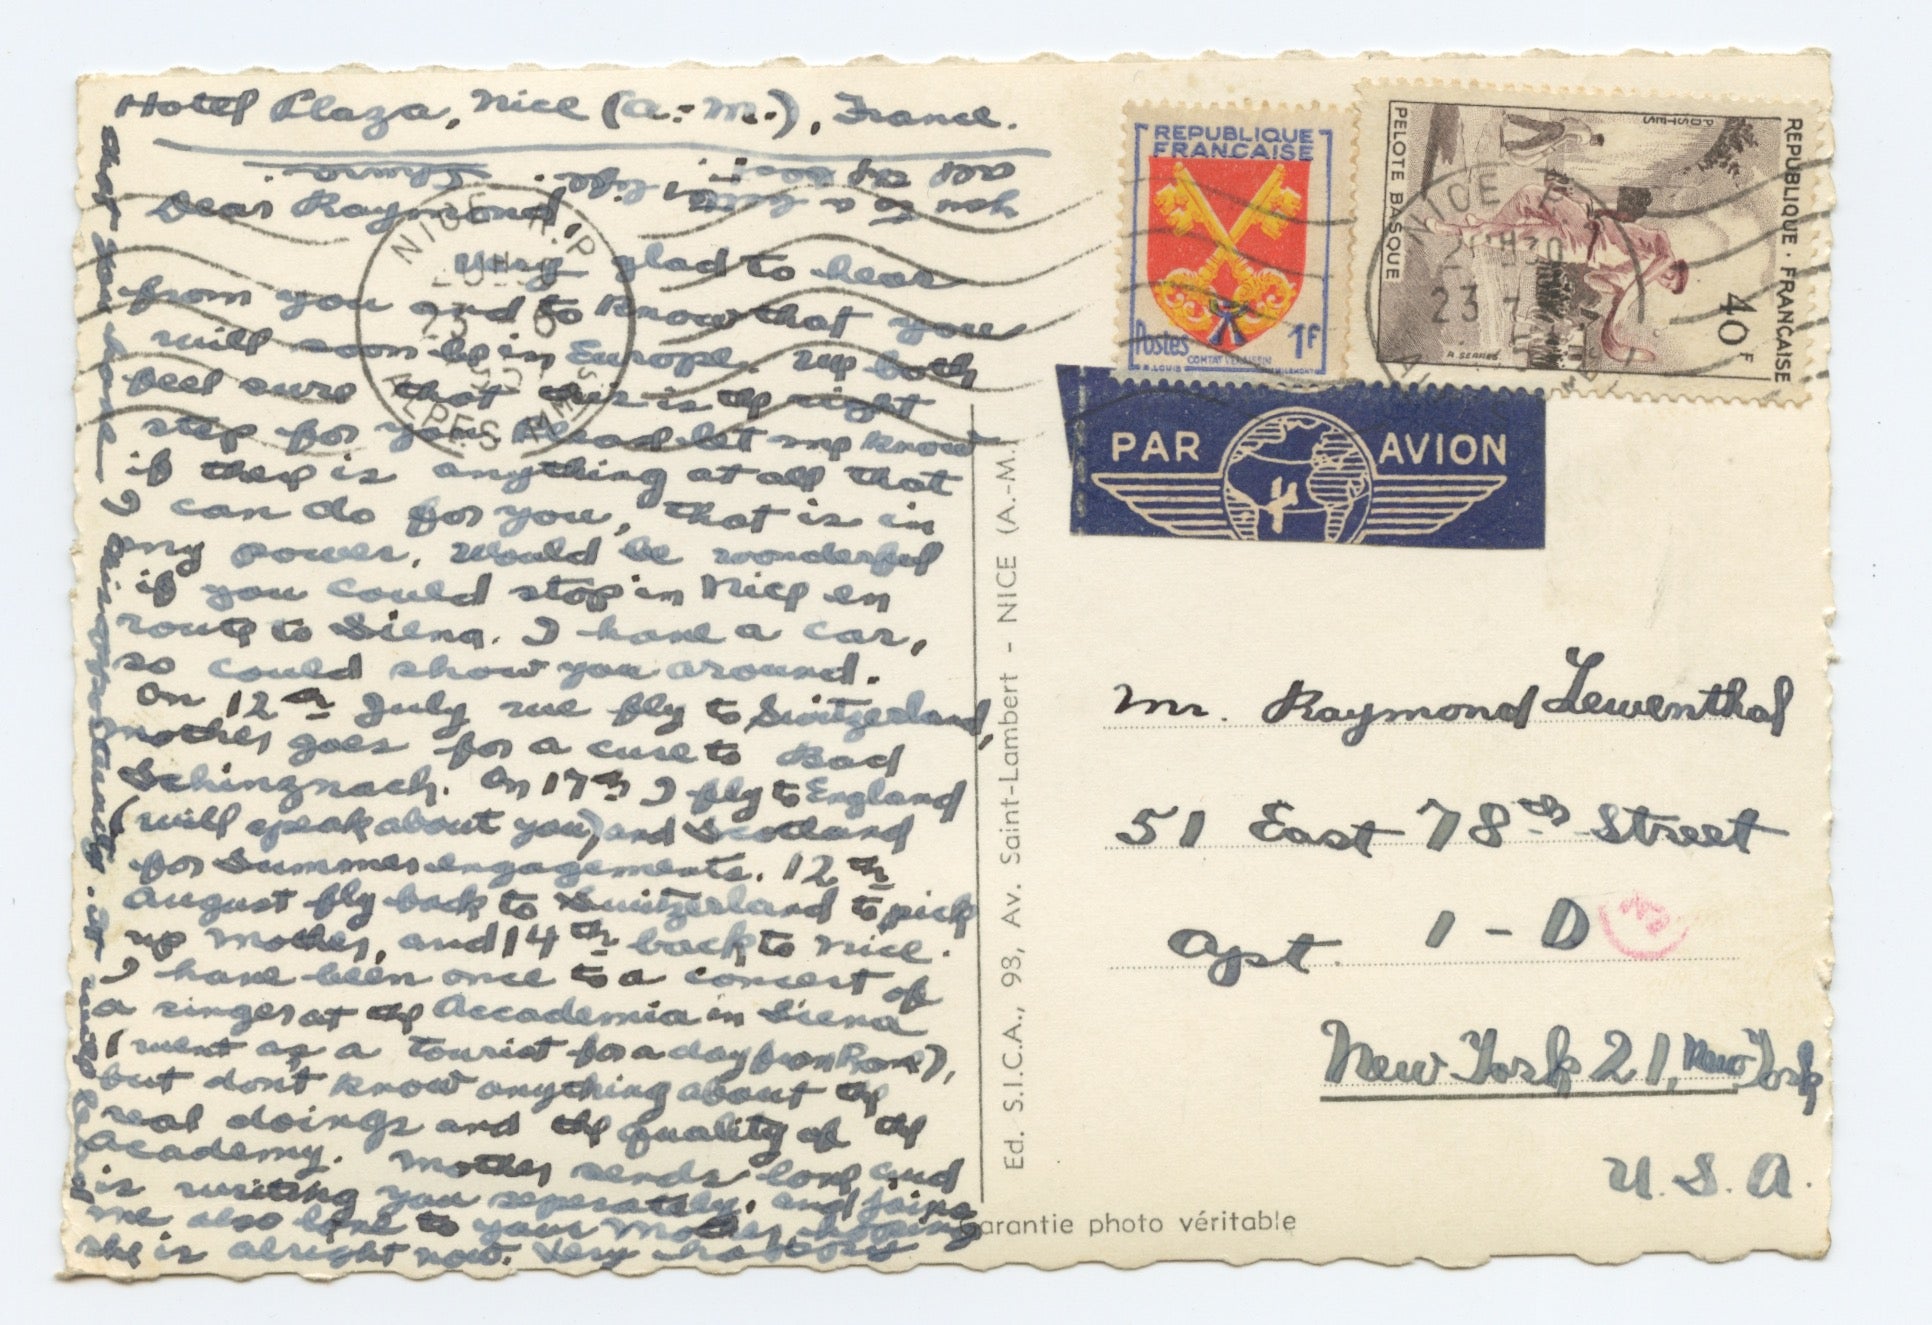 Hotel Plaza, Nice (A.-M.), France.
Dear Raymond,
Very glad to hear
from you and to know that you
will soon be in Europe. We both
feel sure that this is the right
step for you. Please let me know
if there is anything at all that
I can do for you, that is in
my power. Would be wonderful
if you could stop in Nice en
route to Siena. I have a car,
so could show you around.
On 12th July we fly to Switzerland,
Mother goes for a cure to Bad
Schinznach. On 17th I fly to England
(will speak about you) and Scotland
for Summer engagements. 12th
August fly back to Switzerland to pick
up Mother, and 14th back to Nice.
I have been once to a concert of
a singer at the Accademia in Siena
(I went as a tourist for a day from Rome),
but don't know anything about the
real doings and the quality of the
Academy. Mother sends love and
is writing you seperately, and joins
me also love to your Mother hoping
she is alright now. Very happy
that you have
this opportunity. It will
you to a better life.
all the best
NICE R.P.
ALPES MMES
23
REPUBLIQUE
FRANCAISE
Postes
1F
COMTAT VENAISSIN
REPUBLIQUE · FRANÇAISE
POSTES
PELOTE BASQUE
40F
NICE R.P.
23
PAR AVION
Mr. Raymond Lewenthal
51 East 78th Street
Apt. 1-D
New York 21, New York
U.S.A.
Ed. S.I.C.A., 98, Av. Saint-Lambert - NICE (A.-M.)
Garantie photo véritable